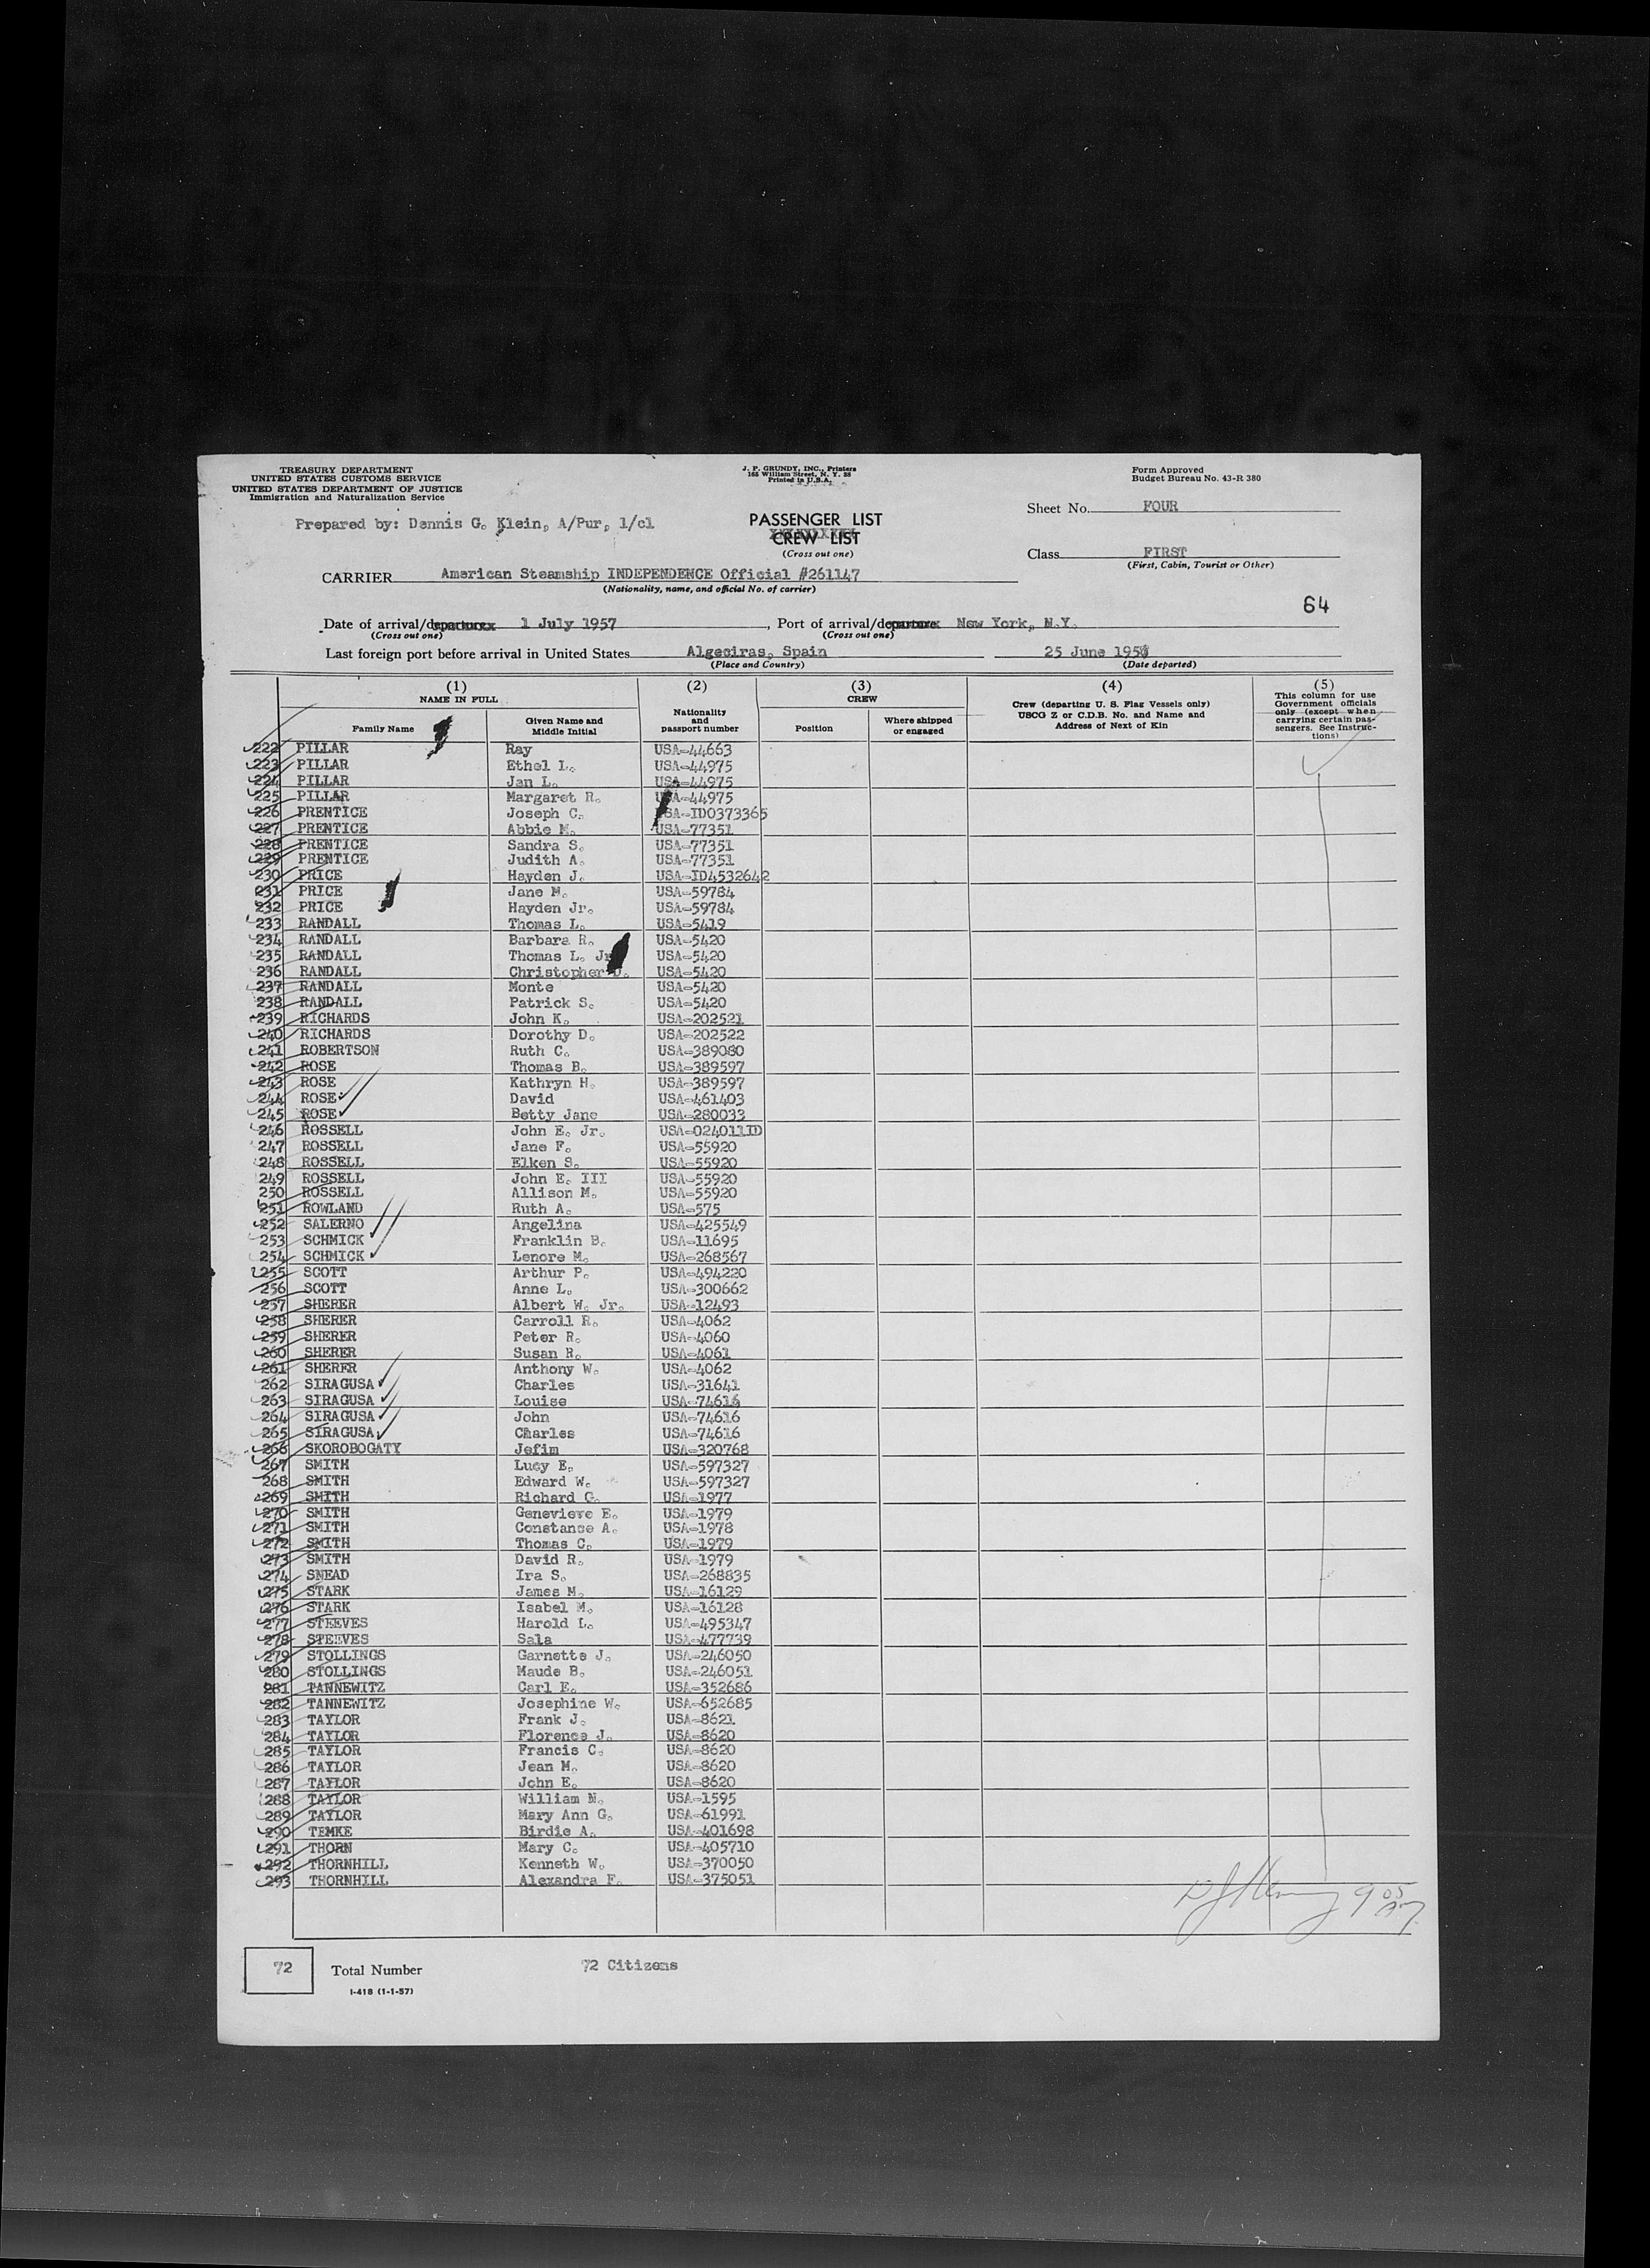 TREASURY DEPARTMENT
UNITED STATES CUSTOMS SERVICE
UNITED STATES DEPARTMENT OF JUSTICE
Immigration and Naturalization Service
J. P. GRUNDY, INC., Printers
165 William Street, N. Y. 38
Printed in U.S.A.
Form Approved
Budget Bureau No. 43-R 380
Prepared by: Dennis G. Klein, A/Pur, 1/cl
Sheet No. FOUR
PASSENGER LIST
CREW LIST
(Cross out one)
Class FIRST
(First, Cabin, Tourist or Other)
CARRIER American Steamship INDEPENDENCE Official #261147
(Nationality, name, and official No. of carrier)
64
Date of arrival/departure 1 July 1957, Port of arrival/departure New York, N.Y.
(Cross out one) (Cross out one)
Last foreign port before arrival in United States Algeciras, Spain 25 June 1957
(Place and Country) (Date departed)
(1) NAME IN FULL
Family Name
Given Name and Middle Initial
(2) Nationality and passport number
(3) CREW
Position
Where shipped or engaged
(4) Crew (departing U. S. Flag Vessels only) USCG Z or C.D.B. No. and Name and Address of Next of Kin
(5) This column for use Government officials only (except when carrying certain passengers. See Instructions)
222 PILLAR Ray USA-44663
223 PILLAR Ethel L. USA-44975
224 PILLAR Jan L. USA-44975
225 PILLAR Margaret R. USA-44975
226 PRENTICE Joseph C. USA-ID0373365
227 PRENTICE Abbie M. USA-77351
228 PRENTICE Sandra S. USA-77351
229 PRENTICE Judith A. USA-77351
230 PRICE Hayden J. USA-ID4532642
231 PRICE Jane M. USA-59784
232 PRICE Hayden Jr. USA-59784
233 RANDALL Thomas L. USA-5419
234 RANDALL Barbara R. USA-5420
235 RANDALL Thomas L. Jr USA-5420
236 RANDALL Christopher USA-5420
237 RANDALL Monte USA-5420
238 RANDALL Patrick S. USA-5420
239 RICHARDS John K. USA-202521
240 RICHARDS Dorothy D. USA-202522
241 ROBERTSON Ruth C. USA-389080
242 ROSE Thomas B. USA-389597
243 ROSE Kathryn H. USA-389597
244 ROSE David USA-461403
245 ROSE Betty Jane USA-280033
246 ROSSELL John E. Jr. USA-024011ID
247 ROSSELL Jane F. USA-55920
248 ROSSELL Elken S. USA-55920
249 ROSSELL John E. III USA-55920
250 ROSSELL Allison M. USA-55920
251 ROWLAND Ruth A. USA-575
252 SALERNO Angelina USA-425549
253 SCHMICK Franklin B. USA-11695
254 SCHMICK Lenore M. USA-268567
255 SCOTT Arthur P. USA-494220
256 SCOTT Anne L. USA-300662
257 SHERER Albert W. Jr. USA-12493
258 SHERER Carroll R. USA-4062
259 SHERER Peter R. USA-4060
260 SHERER Susan R. USA-4061
261 SHERER Anthony W. USA-4062
262 SIRAGUSA Charles USA-31641
263 SIRAGUSA Louise USA-74616
264 SIRAGUSA John USA-74616
265 SIRAGUSA Charles USA-74616
266 SKOROBOGATY Jefim USA-320768
267 SMITH Lucy E. USA-597327
268 SMITH Edward W. USA-597327
269 SMITH Richard G. USA-1977
270 SMITH Genevieve E. USA-1979
271 SMITH Constance A. USA-1978
272 SMITH Thomas C. USA-1979
273 SMITH David R. USA-1979
274 SNEAD Ira S. USA-268835
275 STARK James M. USA-16129
276 STARK Isabel M. USA-16128
277 STEEVES Harold L. USA-495347
278 STEEVES Sala USA-477739
279 STOLLINGS Garnette J. USA-246050
280 STOLLINGS Maude B. USA-246051
281 TANNEWITZ Carl E. USA-352686
282 TANNEWITZ Josephine W. USA-652685
283 TAYLOR Frank J. USA-8621
284 TAYLOR Florence J. USA-8620
285 TAYLOR Francis C. USA-8620
286 TAYLOR Jean M. USA-8620
287 TAYLOR John E. USA-8620
288 TAYLOR William N. USA-1595
289 TAYLOR Mary Ann G. USA-61991
290 TEMKE Birdie A. USA-401698
291 THORN Mary C. USA-405710
292 THORNHILL Kenneth W. USA-370050
293 THORNHILL Alexandra F. USA-375051
9 05
72 Total Number 72 Citizens
I-418 (1-1-57)